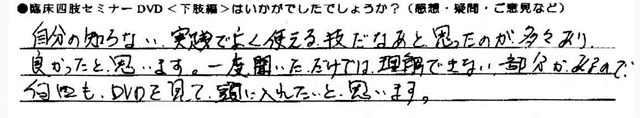 ●臨床四肢セミナーDVD＜下肢編＞はいかがでしたでしょうか？（感想・疑問・ご意見など）
自分の知らない、実践でよく使える技だなあと思ったのが多々あり、
良かったと思います。一度聞いただけでは理解できない部分があるので、
何回も、DVDを見て、頭に入れたいと思います。